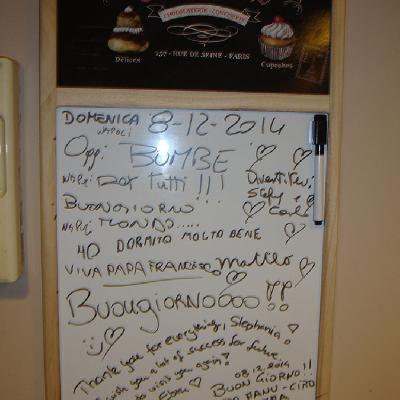 CHOCOLATERIE - CONFISERIE
Délices
157 - RUE DE SEINE - PARIS
Cupcakes
DOMENICA 8-12-2014
NAPOLI
Oggi BOMBE
Per Tutti !!!
Divertitevi
BUONGIORNO
MONDO.....
HO DORMITO MOLTO BENE
VIVA PAPA FRANCESCO Matteo
BuongiornoOOO !!
Thank you for everything, Stephania!
wish you a lot of success for future
to visit you again!
08.12.2014
BUON GIORNO!!
MANU - CIRO